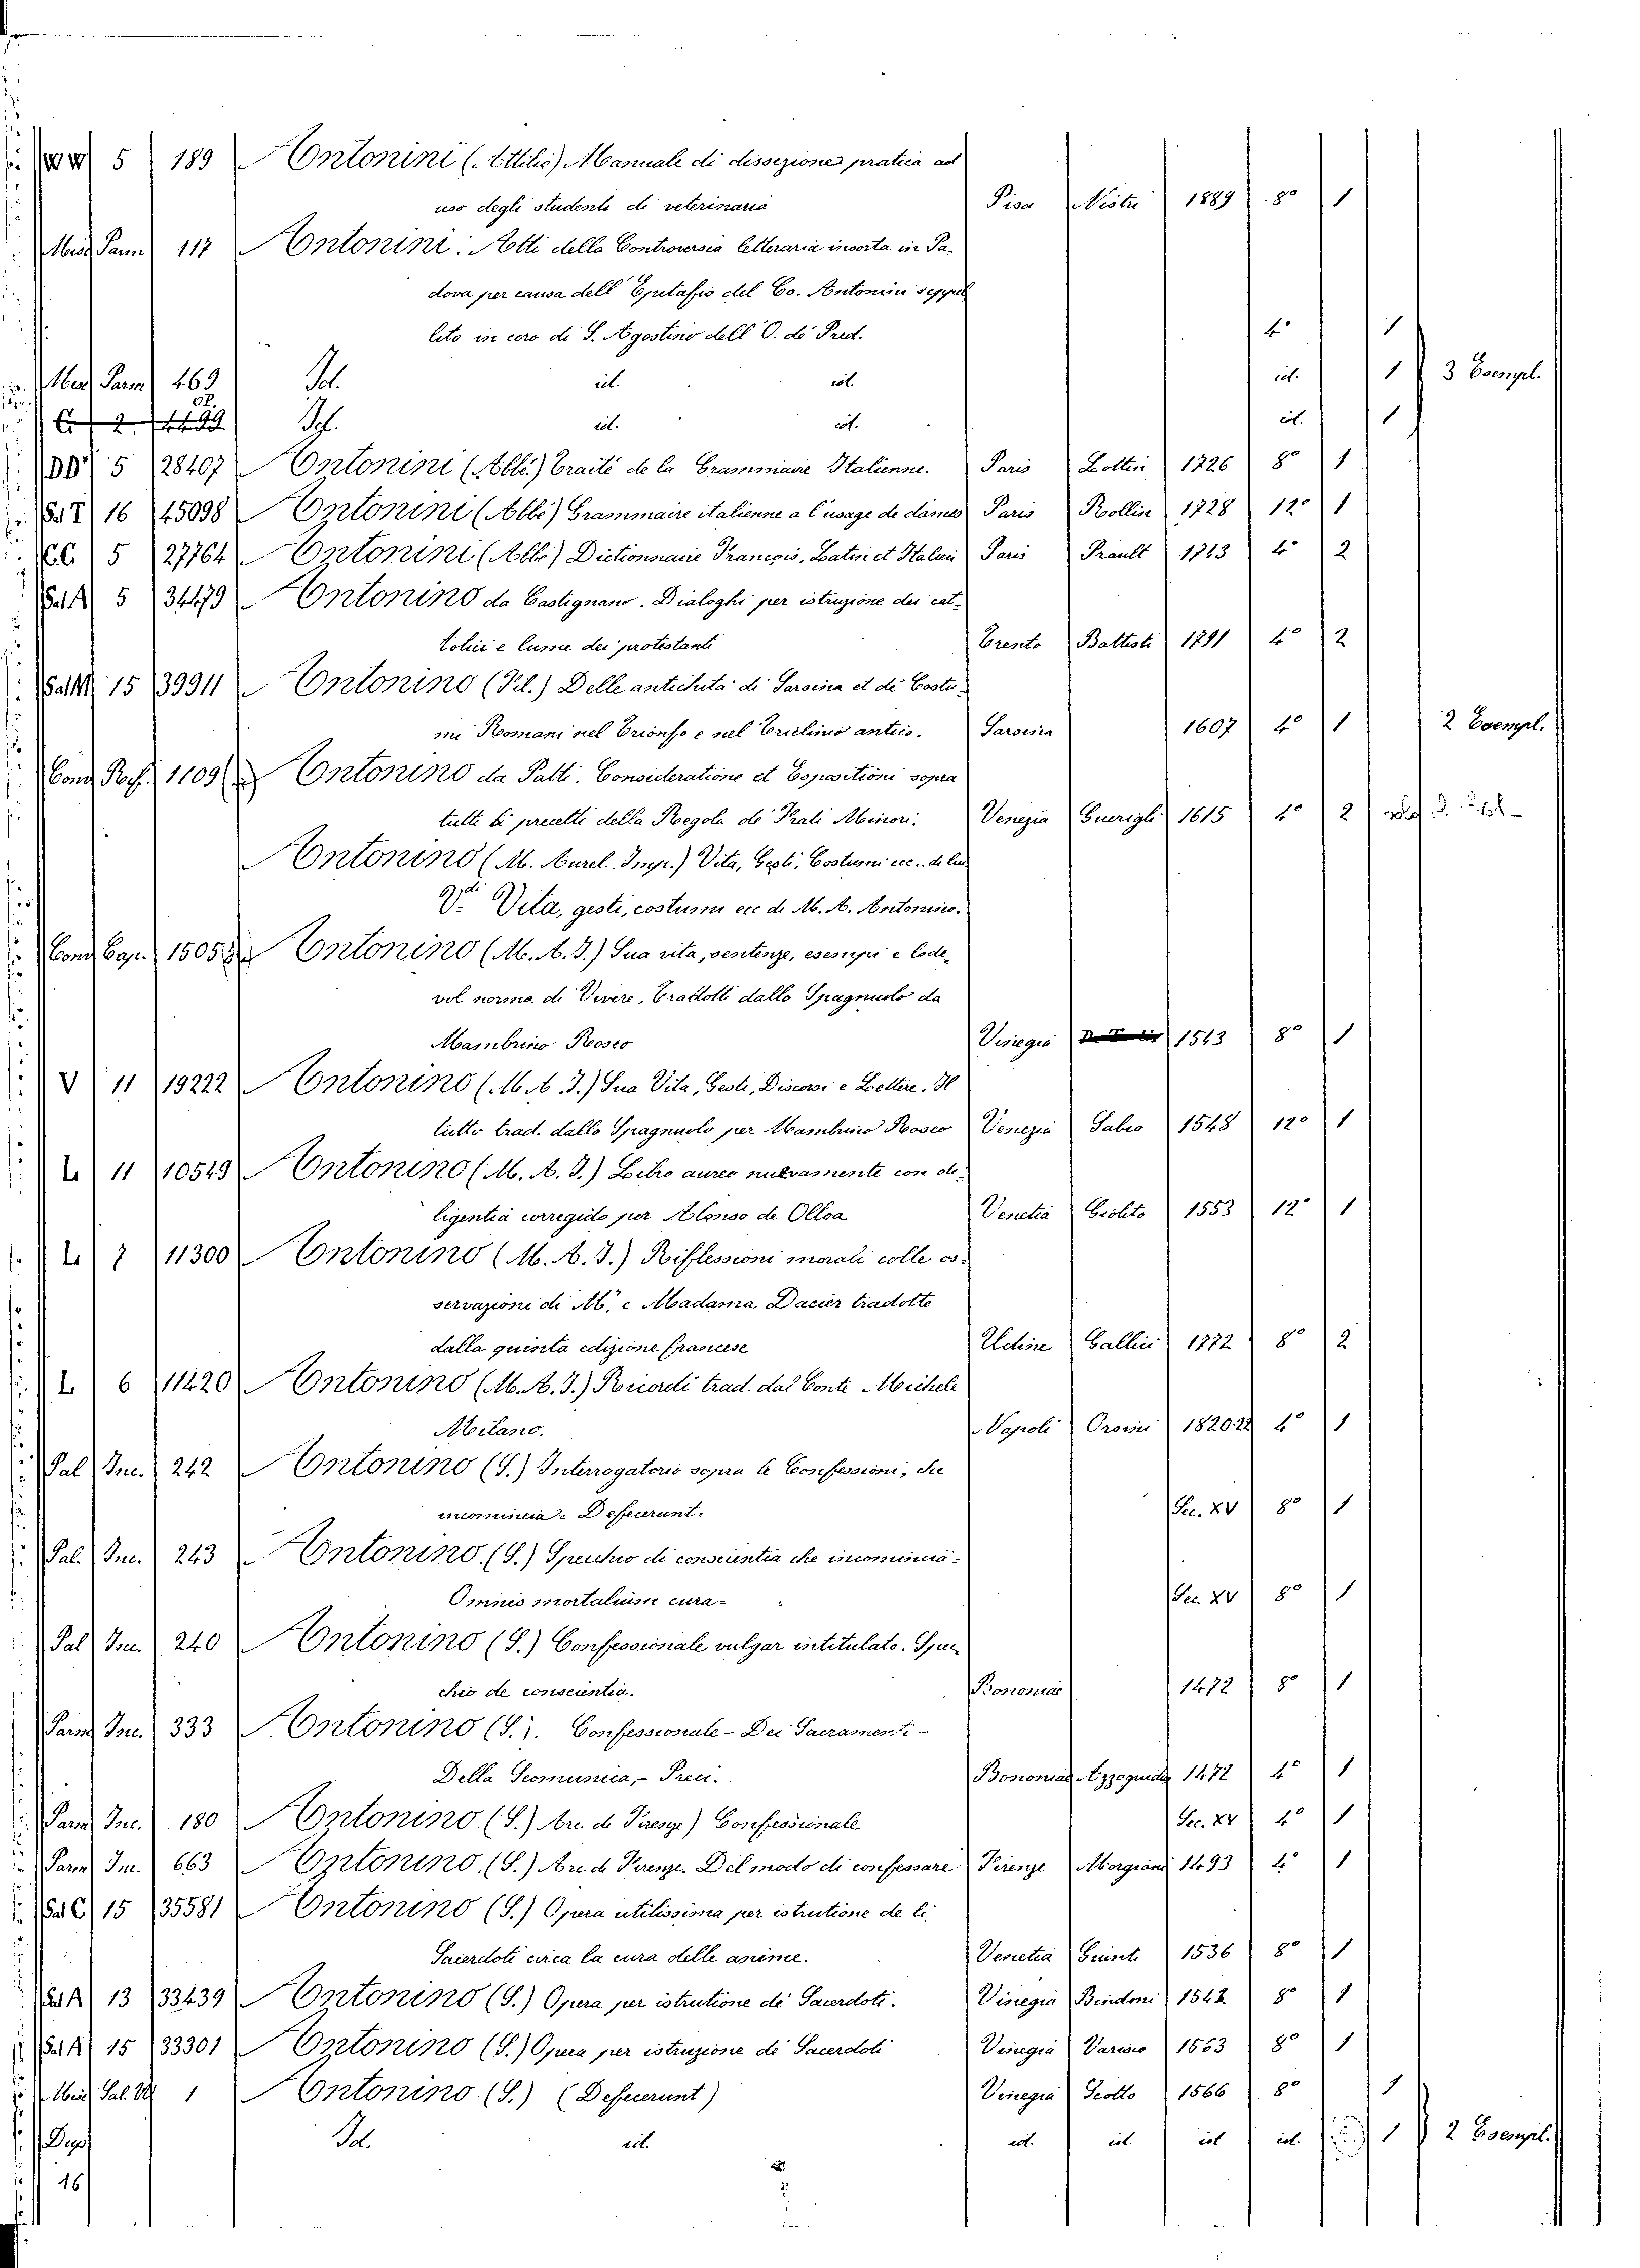 WW 5 189 Antonini (Attilio) Manuale di dissezione pratica ad
uso degli studenti di veterinaria Pisa Nistri 1889 8° 1
Misc. Parm. 117 Antonini. Atti della Controversia letteraria insorta in Pa-
dova per causa dell' Epitafio del Co. Antonini seppel
lito in coro di S. Agostino dell' O. de' Pred. 4° 1
Misc. Parm. 469 Id. id. id. id. 1 3 Esempl.
Id. id. id. id. 1
DD 5 28407 Antonini (Abbé) Traité de la Grammaire Italienne. Paris Lottin 1726 8° 1
Sal T 16 45098 Antonini (Abbé) Grammaire italienne a l'usage de dames Paris Rollin 1728 12° 1
CC 5 27764 Antonini (Abbé) Dictionnaire François, Latin et Italien Paris Prault 1743 4° 2
Sal A 5 34479 Antonino da Castignano. Dialoghi per istruzione dei cat-
tolici e lume dei protestanti Trento Battisti 1791 4° 2
Sal M 15 39911 Antonino (Fil.) Delle antichità di Sarsina et di Costu-
mi Romani nel Trionfo e nel Triclinio antico. Sarsina 1607 4° 1 2 Esempl.
Conv. Rif. 1109 Antonino da Patti. Consideratione et Espositioni sopra
tutti li precetti della Regola de' Frati Minori. Venezia Guerigli 1615 4° 2
Antonino (M. Aurel. Imp.) Vita, Gesti, Costumi ecc. de lui
V.di Vita, gesti, costumi ecc di M. A. Antonino.
Conv. Cap. 1505 Antonino (M. A. I.) Sua vita, sentenze, esempi e lode-
vol norma di Vivere, Tradotti dallo Spagnuolo da
Mambrino Roseo Vinegia 1543 8° 1
V 11 19222 Antonino (M. A. I.) Sua Vita, Gesti, Discorsi e Lettere. Il
tutto trad. dallo Spagnuolo per Mambrino Roseo Venezia Sabio 1548 12° 1
L 11 10549 Antonino (M. A. I.) Libro aureo nuovamente con di-
ligentia corregido per Alonso de Olloa Venetia Giolito 1553 12° 1
L 7 11300 Antonino (M. A. I.) Riflessioni morali colle os-
servazioni di M. e Madama Dacier tradotte
dalla quinta edizione francese Udine Gallici 1772 8° 2
L 6 11420 Antonino (M. A. I.) Ricordi trad. dal Conte Michele
Milano. Napoli Orsini 1820-22 4° 1
Pal Inc. 242 Antonino (S.) Interrogatorio sopra le Confessioni, che
incomincia - Defecerunt. Sec. XV 8° 1
Pal. Inc. 243 Antonino. (S.) Specchio di conscientia che incomincia -
Omnis mortalium cura - Sec. XV 8° 1
Pal Inc. 240 Antonino (S.) Confessionale vulgar intitulato. Spec-
chio de conscientia. Bononiae 1472 8° 1
Parm. Inc. 333 Antonino (S.). Confessionale - Dei Sacramenti -
Della Scomunica, - Preci. Bononiae Azzoguidi 1472 4° 1
Parm. Inc. 180 Antonino (S.) Arc. di Firenze) Confessionale Sec. XV 4° 1
Parm. Inc. 663 Antonino. (S.) Arc. di Firenze. Del modo di confessare Firenze Morgiani 1493 4° 1
Sal C 15 35581 Antonino (S.) Opera utilissima per istrutione de li
Sacerdoti circa la cura delle anime. Venetia Giunti 1536 8° 1
Sal A 13 33439 Antonino (S.) Opera per istrutione di Sacerdoti. Vinegia Bindoni 1543 8° 1
Sal A 15 33301 Antonino (S.) Opera per istruzione di Sacerdoti Vinegia Varisco 1563 8° 1
1 Antonino (S.) (Defecerunt) Vinegia Scotto 1566 8° 1
Dup. Id. id. id. id. id id. 1 2 Esempl.
16